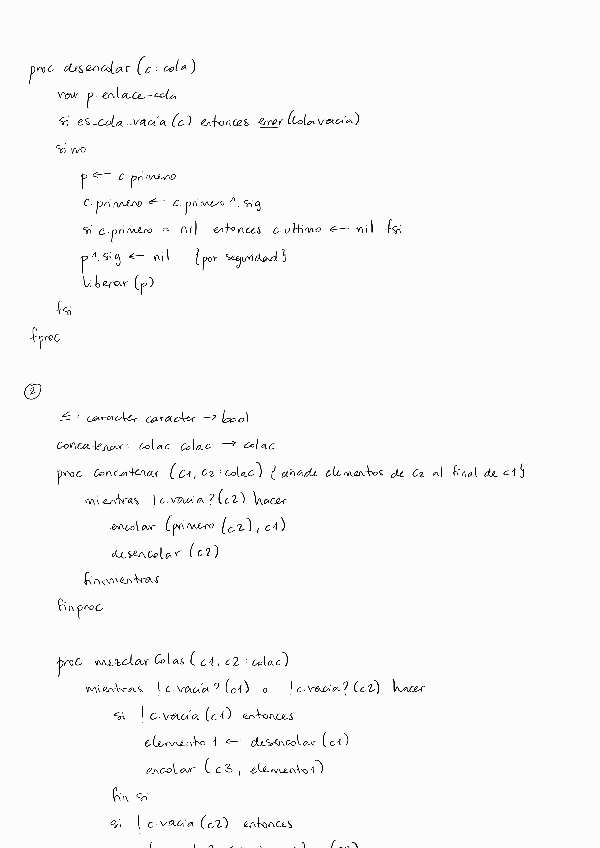 proc desencolar (c: cola)
var p: enlace-cola
si es_cola_vacía (c) entonces error (Cola vacía)
si no
p ← c.primero
c.primero ← c.primero^.sig
si c.primero = nil entonces c.ultimo ← nil fsi
p^.sig ← nil {por seguridad}
liberar (p)
fsi
fproc
②
≤: caracter caracter → bool
concatenar: colac colac → colac
proc concatenar (c1, c2: colac) {añade elementos de c2 al final de c1}
mientras !c.vacia?(c2) hacer
encolar (primero (c2), c1)
desencolar (c2)
finmientras
finproc
proc mezclar Colas (c1, c2: colac)
mientras !c.vacia?(c1) o !c.vacia?(c2) hacer
si !c.vacía (c1) entonces
elemento1 ← desencolar (c1)
encolar (c3, elemento1)
fin si
si !c.vacía (c2) entonces